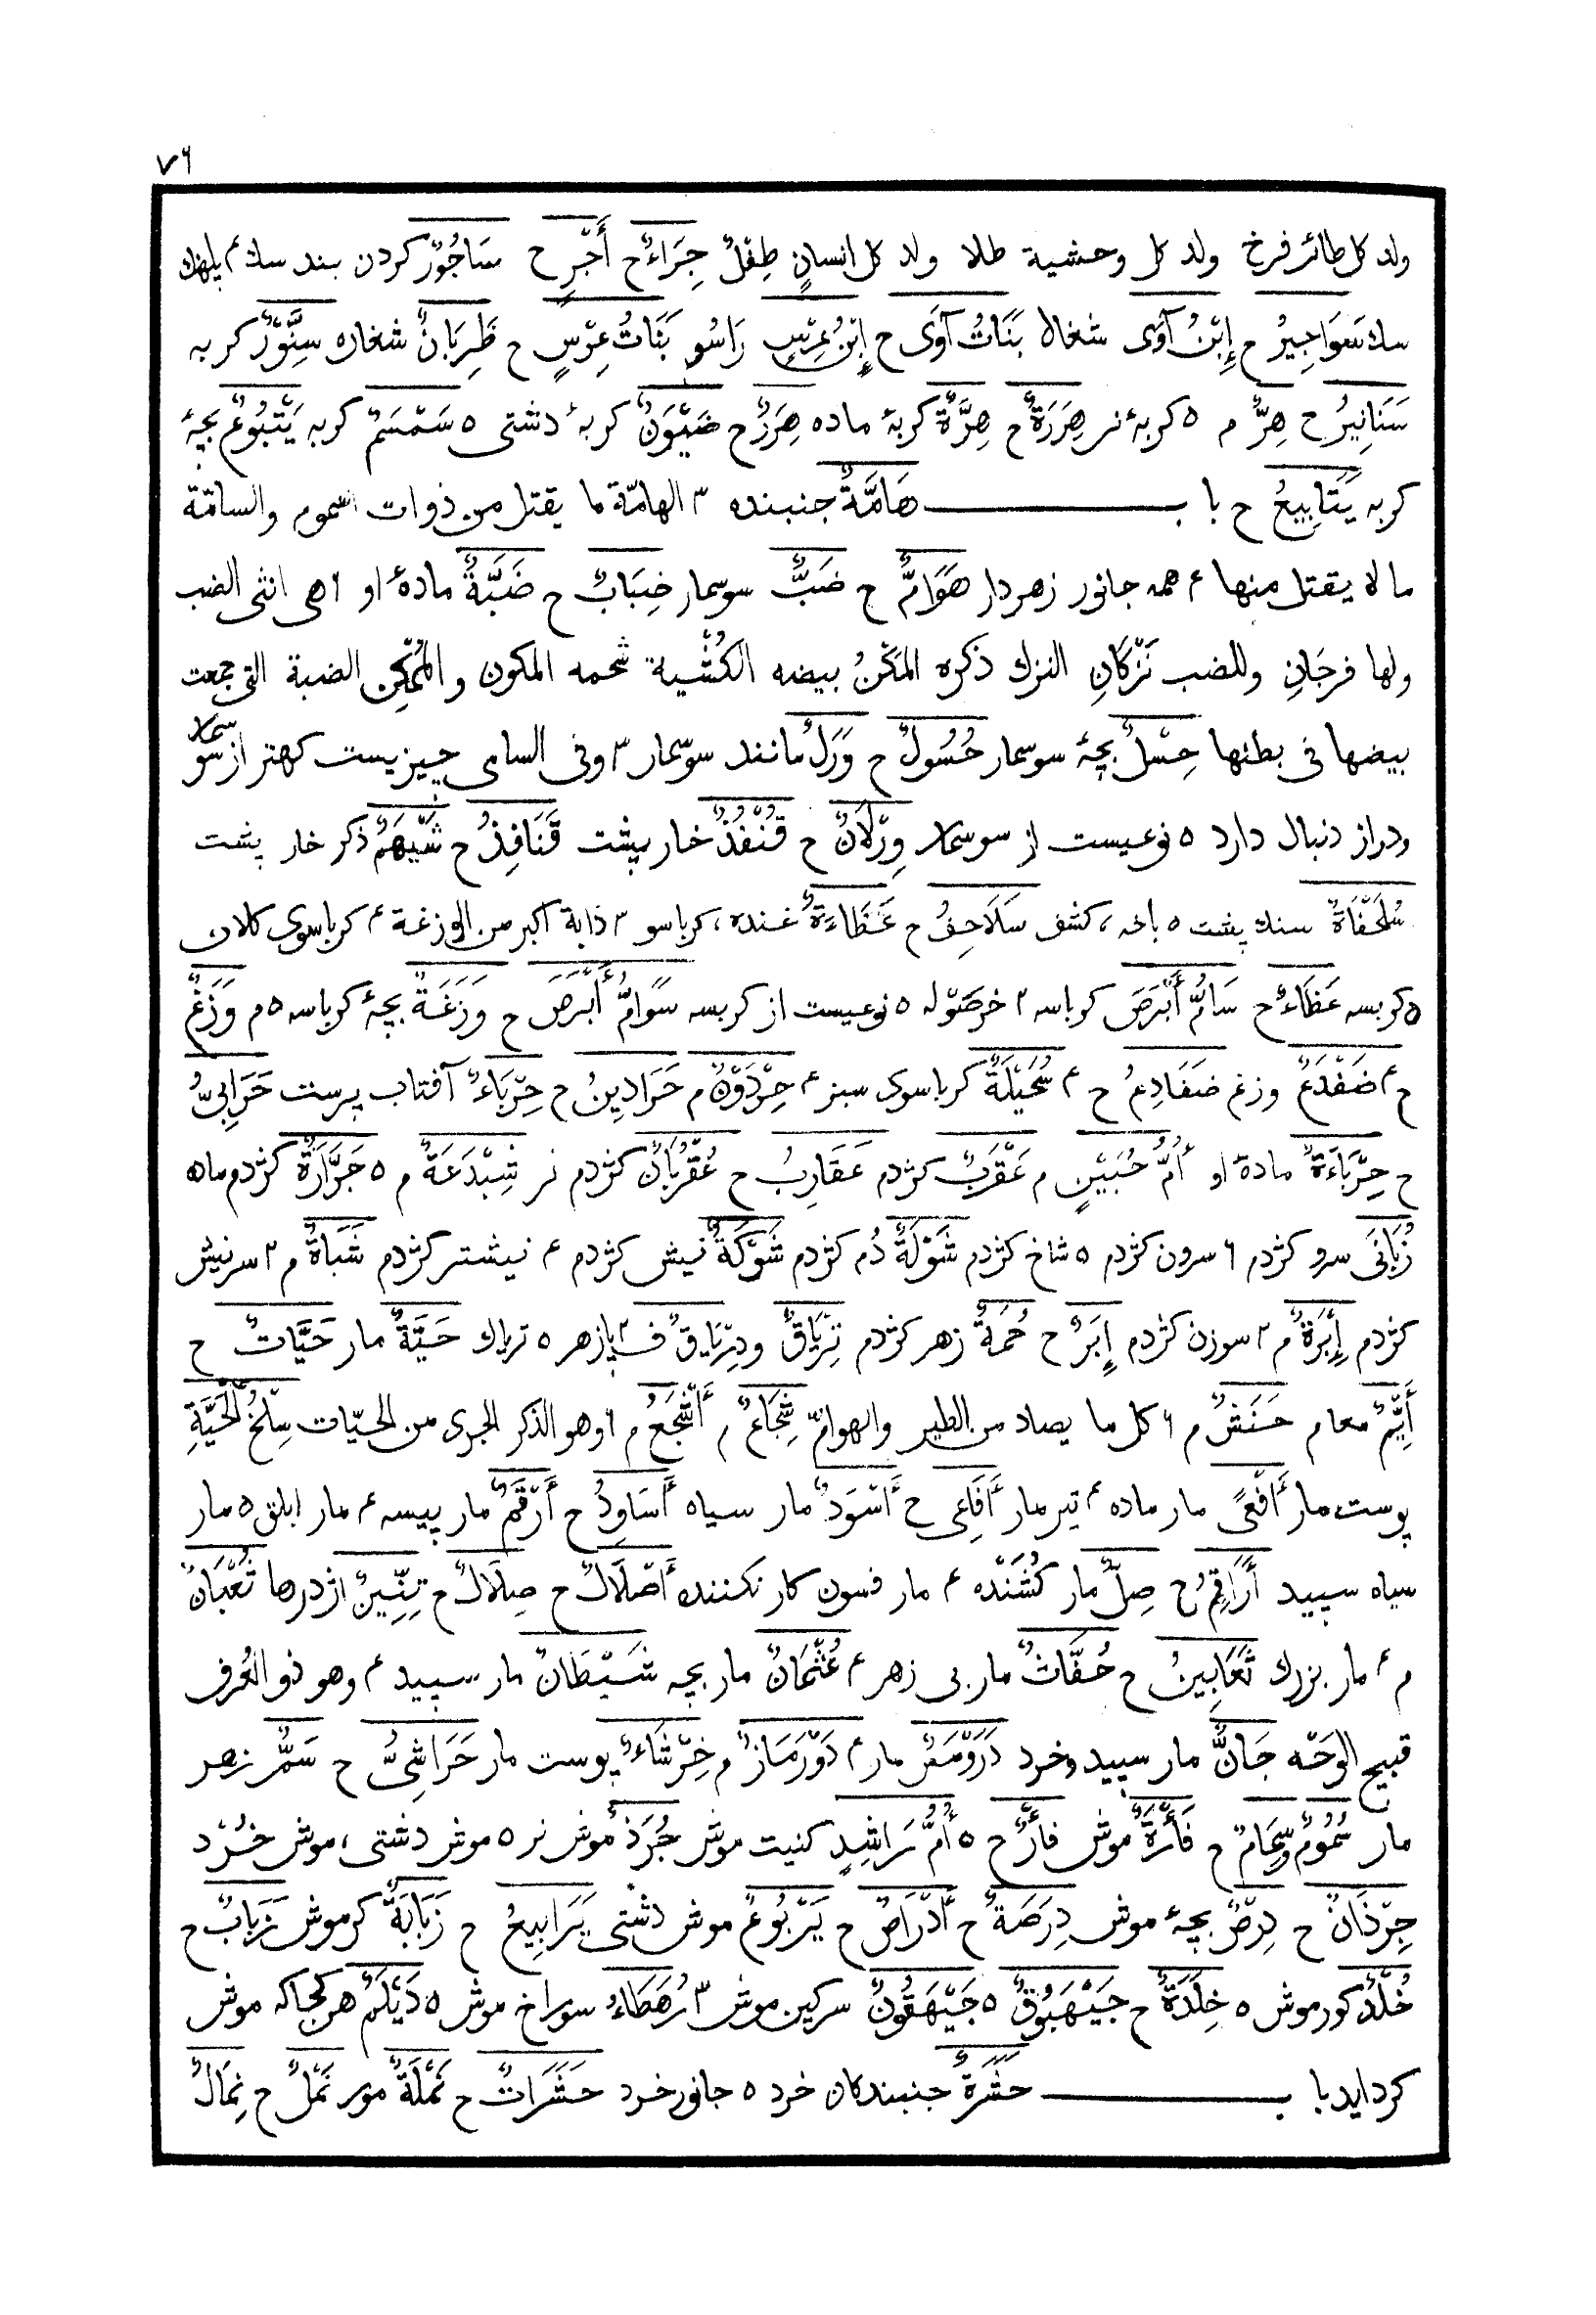 ۷۶
ولد کل طائر فرخ ولد کل وحشیة طلا ولد کل انسانٍ طِفْلٌ جِرَاءٌ ح أَجْرٍ ح سَاجُوْرٌ کردن بند سك ۴
سك سَوَاجِیرُ ح إِبْنُ آوَی شغال بَنَاتُ آوَی ح إِبْنُ عِرْسٍ رَاسُو بَنَاتُ عِرْسٍ ح ظَرِبَانٌ شغاره سِنَّوْرٌ کربه
سَنَانِیرُ ح هِرٌّ م ۵ کربهٔ نر هِرَرَةٌ ح هِرَّةٌ کربهٔ ماده هِرَرٌ ح ضَیْوَنٌ کربهٔ دشتی ۵ سَمْسَمٌ کربه یَتْبُوْعٌ بچهٔ
کربه یَتَابِیعُ ح با ب هَامَّةٌ جنبنده ۳ الهامّة ما یقتل من ذوات السموم والسامّة
ما لا یقتل منها ۴ همه جانور زهردار هَوَامٌّ ح ضَبٌّ سوسمار ضِبَابٌ ح ضَبَّةٌ مادهٔ او ۶ هی انثی الضب
ولها فرجَانِ وللضب نَزْکَانِ النزك ذکره المَکْنُ بیضه الکُشْیة شحمه المکون والمُمْکِن الضبة التی جمعت
بیضها فی بطنها حِسْلٌ بچهٔ سوسمار حُسُولٌ ح وَرَلٌ مانند سوسمار ۳ وفی السامی چیزیست کهتر از سوسمار
ودراز دنبال دارد ۵ نوعیست از سوسمار وِرْلَانٌ ح قُنْفُذٌ خار پشت قَنَافِذُ ح شَیْهَمٌ ذکر خار پشت
سُلَحْفَاةٌ سنك پشت ۵ باخه، کشف سَلَاحِفُ ح عَظَاءَةٌ غنده، کرباسو ۳ دابة اکبر من الوزغة ۴ کرباسوی کلان
۵ کربسه عَظَاءٌ ح سَامُّ أَبْرَصَ کرباسه ۲ خرصَوْله ۵ نوعیست از کربسه سَوَامُّ أَبْرَصَ ح وَزَغَةٌ بچهٔ کرباسه ۵ م وَزَغٌ
ح ۴ ضَفْدَعٌ وزغ ضَفَادِعُ ح ۴ سُحَیْلَةٌ کرباسوی سبز ۴ حِرْدَوْنٌ م حَرَادِینُ ح حِرْبَاءٌ آفتاب پرست حَرَابِیُّ
ح حِرْبَاءَةٌ مادهٔ او أُمُّ حُبَیْنٍ م عَقْرَبٌ کژدم عَقَارِبُ ح عُقْرُبَانٌ کژدم نر شِبْدَعَةٌ م ۵ جَرَّارَةٌ کژدم ماده
زُبَانَی سرو کژدم ۶ سرون کژدم ۵ شاخ کژدم شَوْلَةٌ دُم کژدم شَوْکَةٌ نیش کژدم ۴ نیشتر کژدم شَبَاةٌ م ۲ سر نیش
کژدم إِبْرَةٌ م ۲ سوزن کژدم إِبَرٌ ح حُمَةٌ زهر کژدم تِرْیَاقٌ ودِرْیَاقٌ ف ۲ پازهر ۵ تریاك حَیَّةٌ مار حَیَّاتٌ ح
أَیْمٌ معا م حَنَشٌ م ۶ کل ما یصاد من الطیر والهوامّ شُجَاعٌ م أَشْجَعُ م ۶ وهو الذکر الجری من الحیّات سِلْخُ الْحَیَّةِ
پوست مار أَفْعًی مار ماده ۴ تیر مار أَفَاعِی ح أَسْوَدُ مار سیاه أَسَاوِدُ ح أَرْقَمُ مار پیسه ۴ مار ابلق ۵ مار
سیاه سپید أَرَاقِمُ ح صِلٌّ مار کُشَنْده ۴ مار فسون کار نکننده أَصْلَالٌ ح صِلَالٌ ح تِنِّینٌ اژدرها ثُعْبَانٌ
م ۴ مار بزرك ثَعَابِینُ ح حُفَّاثٌ مار بی زهر ۴ عُثْمَانٌ مار بچه شَیْطَانٌ مار سپید ۴ وهو ذو العُرف
قبیح الوَجْه جَانٌّ مار سپید وخرد دَرَوْمَسٌ مار ۴ دَوْرَمَازٌ م خِرْشَاءٌ پوست مار خَرَاشِیُّ ح سَمٌّ زهر
مار سُمُوْمٌ وسِمَامٌ ح فَأْرَةٌ موش فَأْرٌ ح ۵ أُمُّ رَاشِدٍ کنیت موش جُرَذٌ موش نر ۵ موش دشتی، موش خُرْد
جِرْذَانٌ ح دِرْصٌ بچهٔ موش دِرَصَةٌ ح أَدْرَاصٌ ح یَرْبُوْعٌ موش دشتی یَرَابِیعُ ح زَبَابَةٌ کرموش زَبَابٌ ح
خُلْدٌ کورموش ۵ خِلَدَةٌ ح جَیْهَبُوْقٌ ۵ جَیْهَقُونٌ سرکین موش ۳ رُهَطَاءُ سوراخ موش ۵ دَیْلَمٌ هر کجا که موش
کرداید با ب حَشَرَةٌ جنبندکان خرد ۵ جانور خرد حَشَرَاتٌ ح نَمْلَةٌ مور نَمْلٌ ح نِمَالٌ